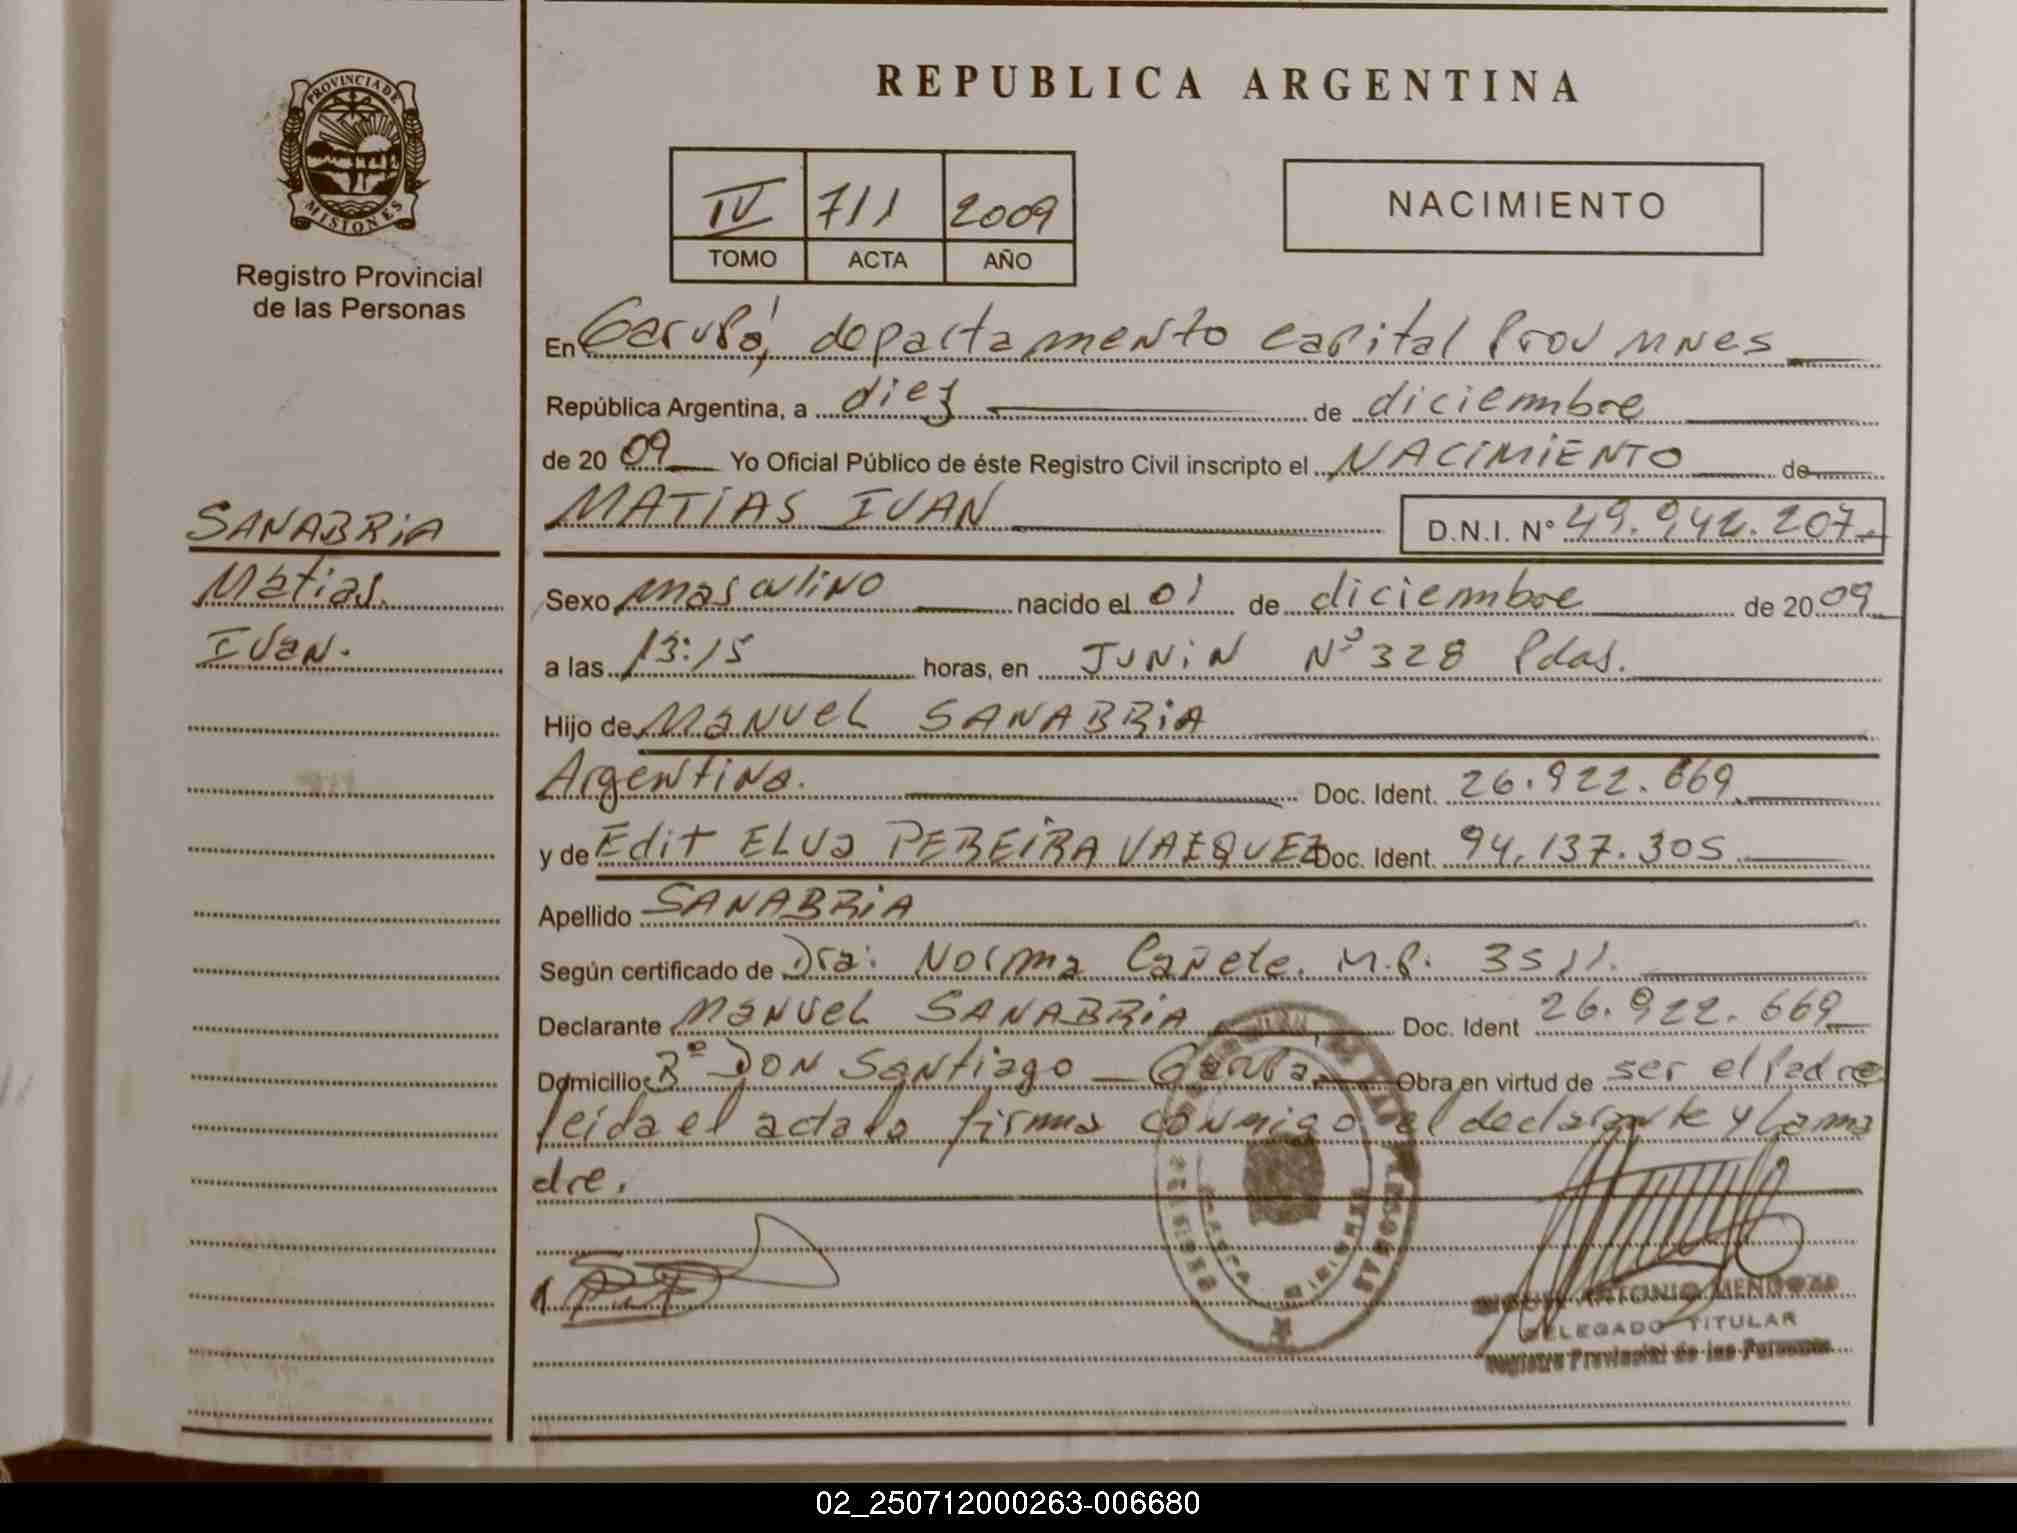 PROVINCIA DE
MISIONES
Registro Provincial
de las Personas
SANABRIA
Matias
Ivan.
REPUBLICA ARGENTINA
IV 711 2009
TOMO ACTA AÑO
NACIMIENTO
En Garupá, departamento capital Prov Mnes
República Argentina, a diez de diciembre
de 2009 Yo Oficial Público de éste Registro Civil inscripto el NACIMIENTO de
MATIAS IVAN D.N.I. N° 49.942.207.
Sexo masculino nacido el 01 de diciembre de 2009
a las 13:15 horas, en JUNIN N° 328 Pdas.
Hijo de Manuel SANABRIA
Argentina. Doc. Ident. 26.922.669
y de Edit ELVA PEREIRA VAEQUEZ Doc. Ident. 94.137.305
Apellido SANABRIA
Según certificado de Dra: Norma Cañete. M.P. 3511.
Declarante Manuel SANABRIA Doc. Ident 26.922.669
Domicilio B° DON Santiago - Garupa, Obra en virtud de ser el Padre
leida el acta la firma conmigo el declarante y la ma
dre.
ANTONIO MENDOZA
DELEGADO TITULAR
Registro Provincial de las Personas
02_250712000263-006680